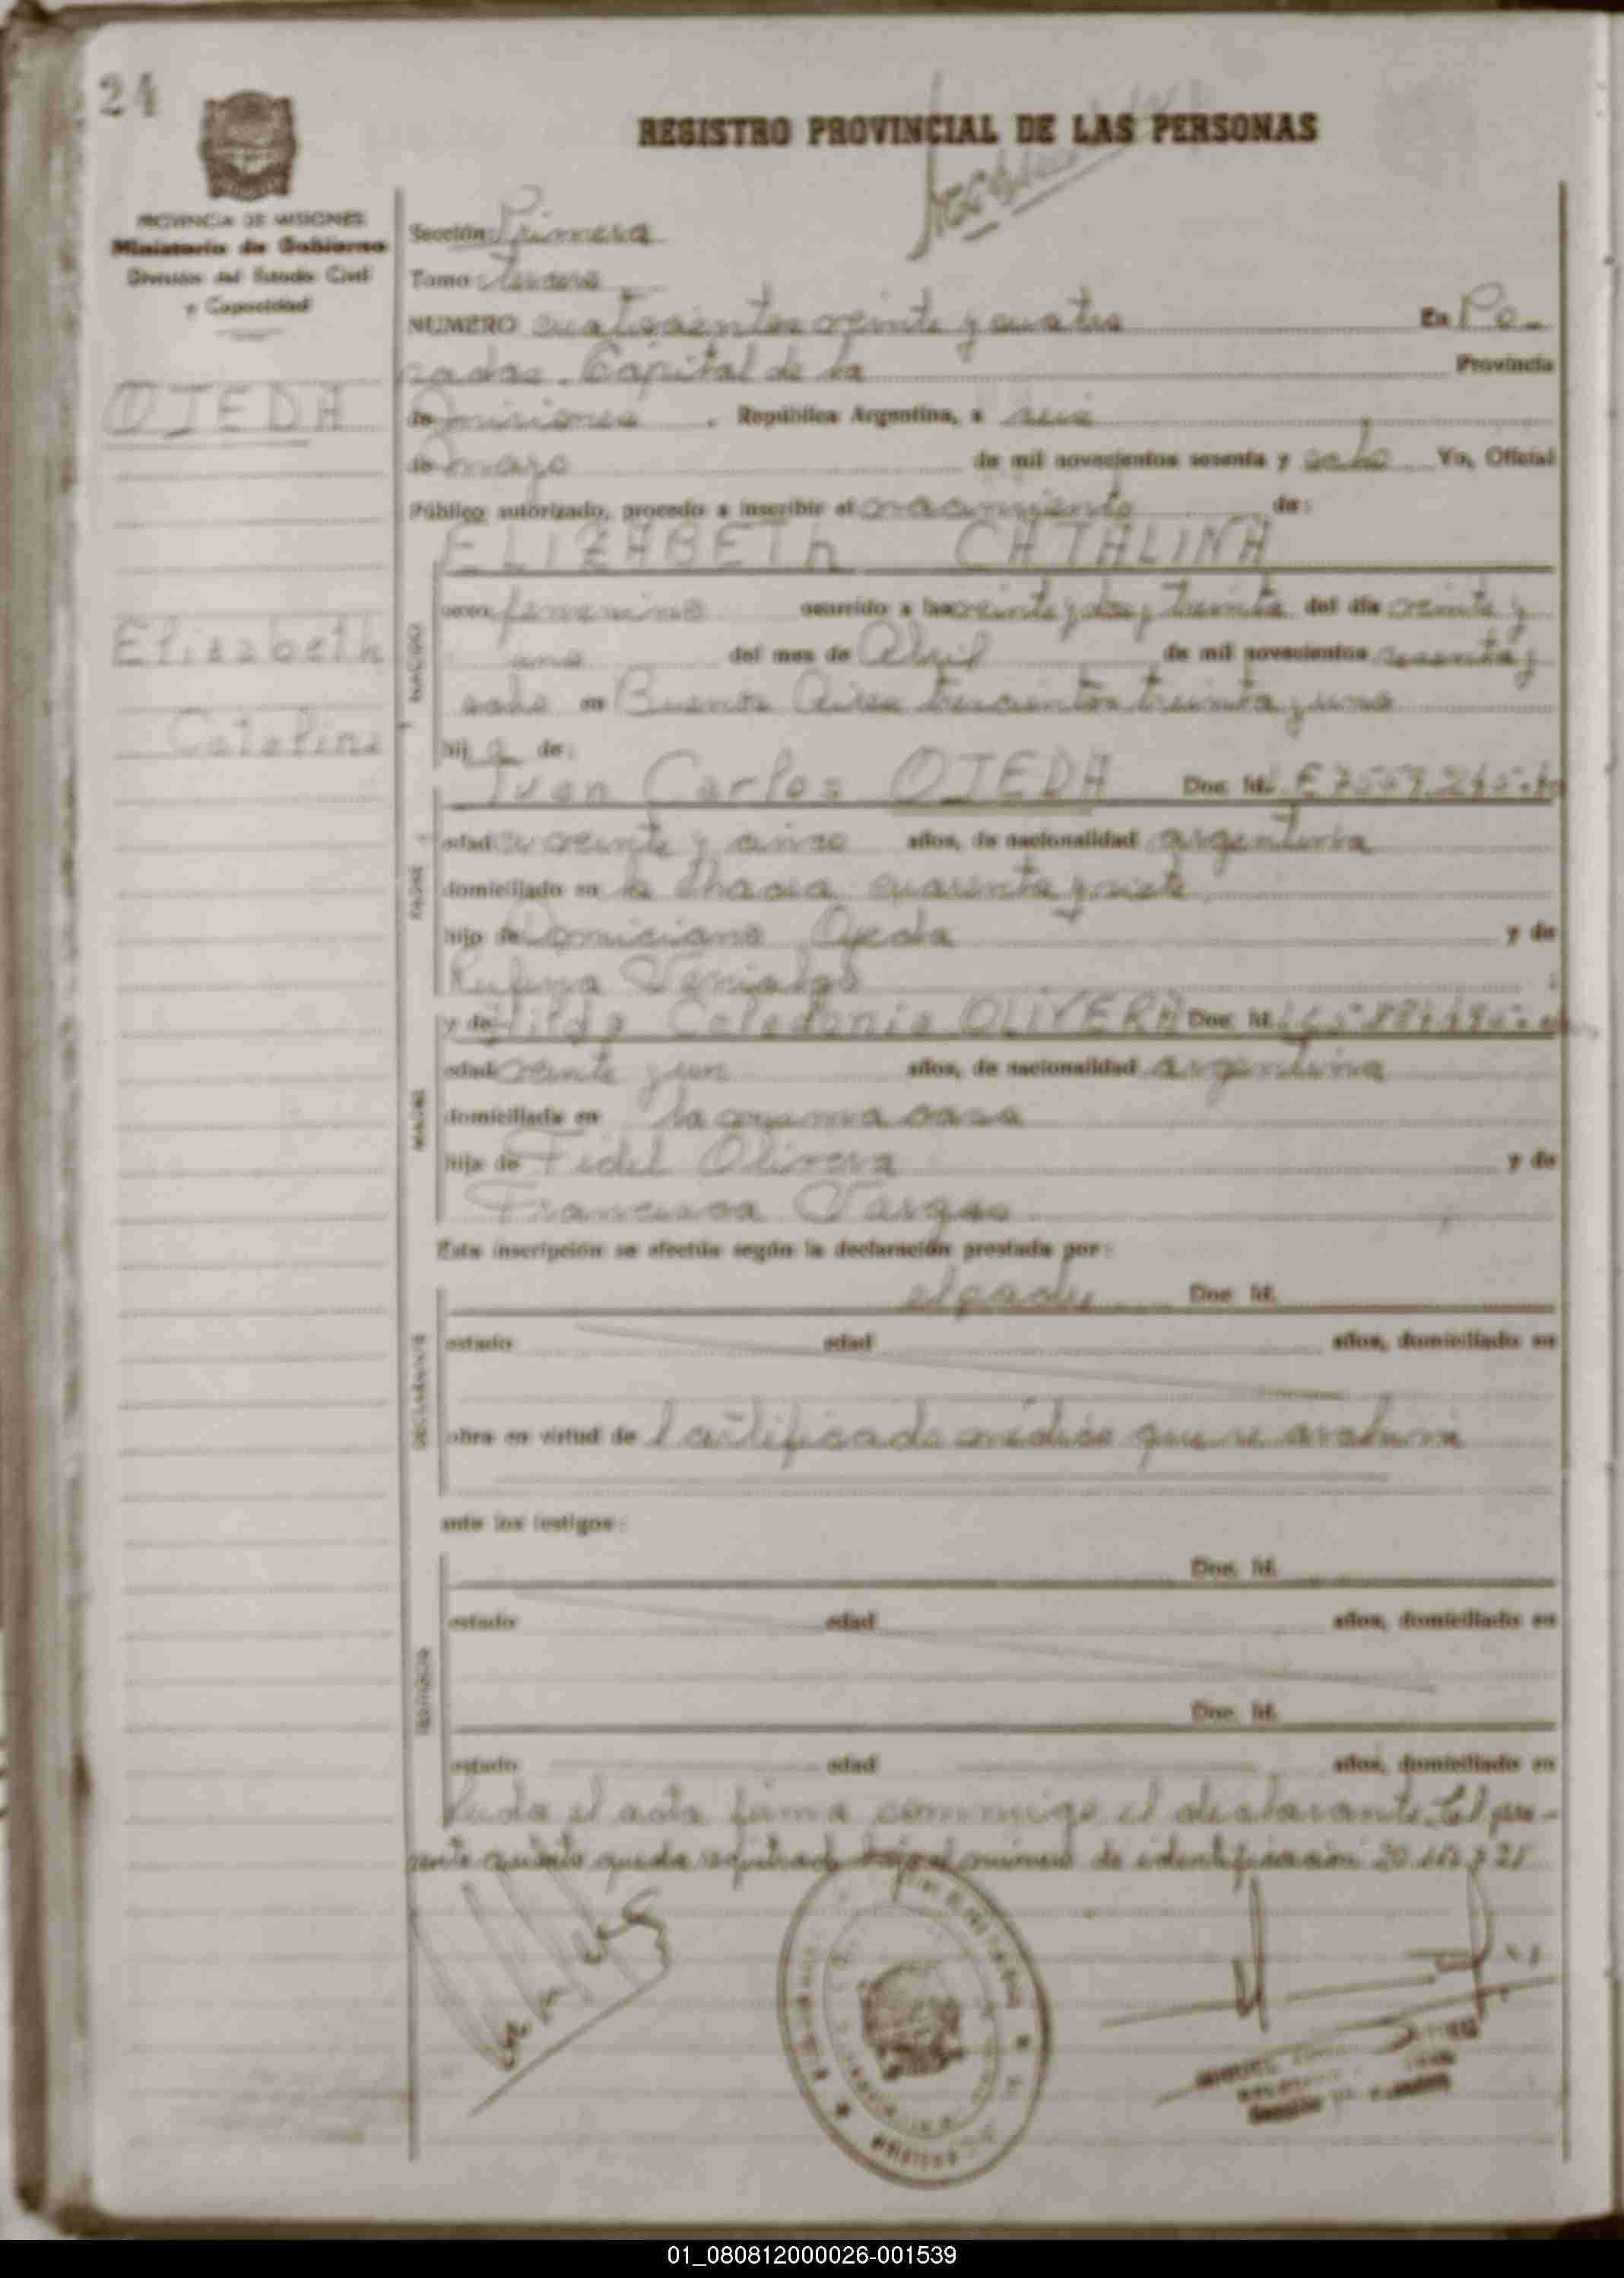 24
REGISTRO PROVINCIAL DE LAS PERSONAS
PROVINCIA DE MISIONES
Ministerio de Gobierno
División del Estado Civil
y Capacidad
Sección: Primera
Tomo: Tercero
NUMERO cuatrocientos veinte y cuatro En Po-
sadas. Capital de la Provincia
OJEDA
de Misiones, República Argentina, a seis
de mayo de mil novecientos sesenta y ocho Yo, Oficial
Público autorizado, procedo a inscribir el nacimiento de:
ELIZABETh CATALINA
NACIDO
sexo femenino ocurrido a las veinte y dos y treinta del día veinte y
Elizabeth
uno del mes de Abril de mil novecientos sesenta y
ocho en Buenos Aires trescientos treinta y uno
Catalina
hij a de:
Juan Carlos OJEDA Doc. Id.
PADRE
edad veinte y cinco años, de nacionalidad argentina
domiciliado en la Chacra cuarenta y siete
hijo de Domiciano Ojeda y de
Rufina
y de Hilda Celedonia OLIVERA Doc. Id.
MADRE
edad veinte y un años, de nacionalidad argentina
domiciliada en la misma casa
hija de Fidel Olivera y de
Francisca Vargas
Esta inscripción se efectúa según la declaración prestada por:
el padre Doc. Id.
DECLARANTE
estado edad años, domiciliado en
obra en virtud de l certificado médico que se archiva
ante los testigos:
Doc. Id.
TESTIGOS
estado edad años, domiciliado en
Doc. Id.
estado edad años, domiciliado en
Leida el acta firma conmigo el declarante. El pre-
sente queda registrado bajo el número de identificación
MISIONES
01_080812000026-001539